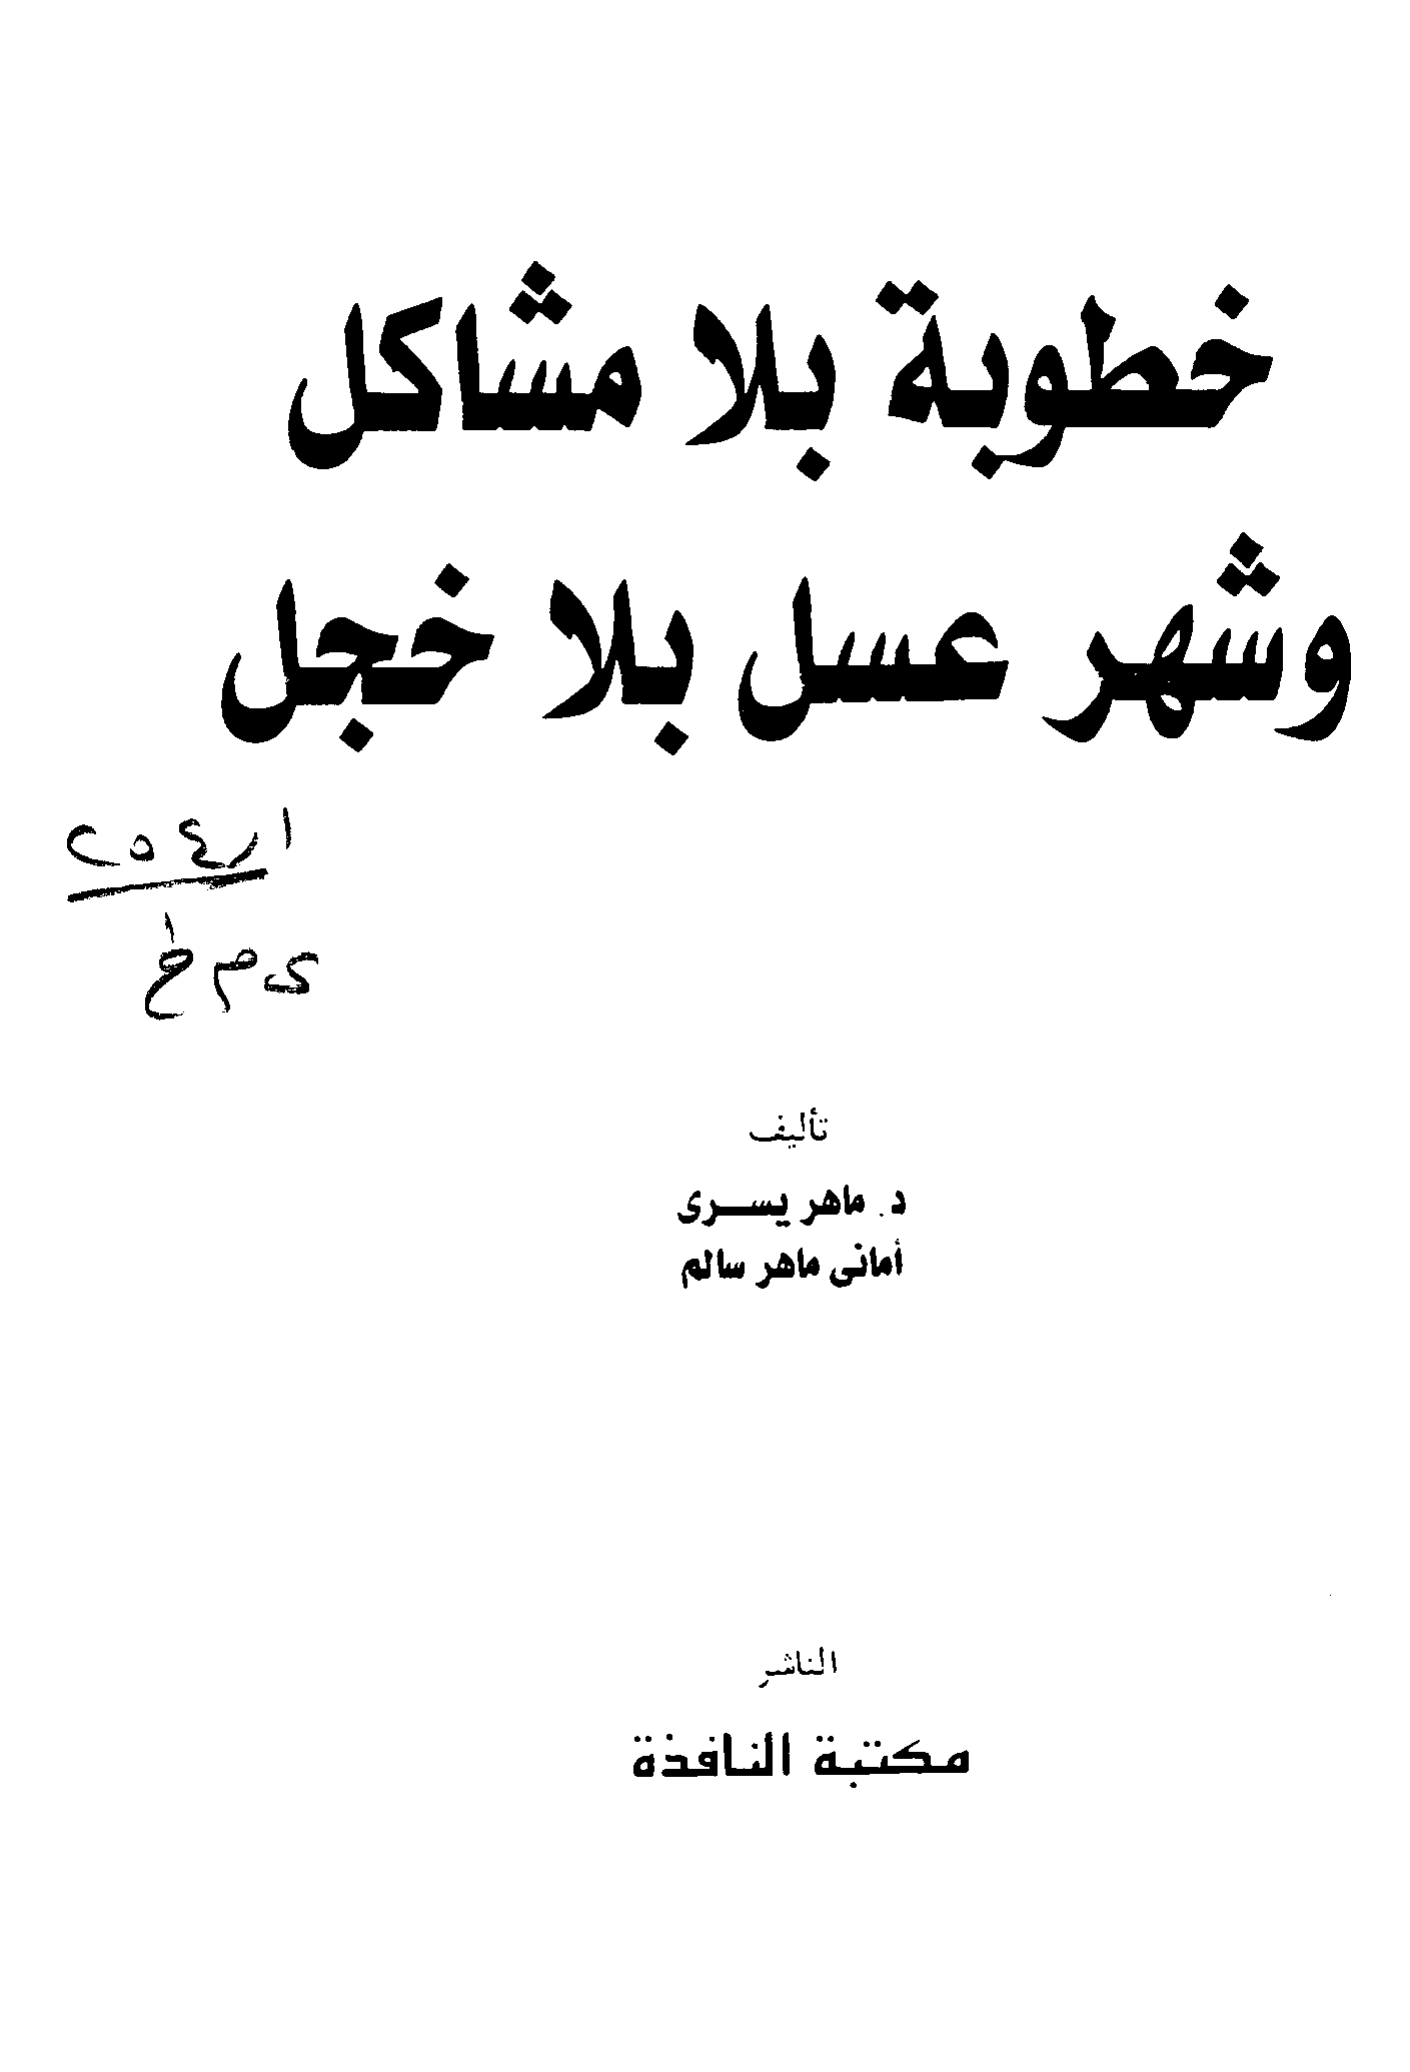 خطوبة بلا مشاكل
وشهر عسل بلا خجل
٢٥٤ر١
ى م خ
تأليف
د. ماهر يســـرى
أمانى ماهر سالم
الناشر
مكتبة النافذة